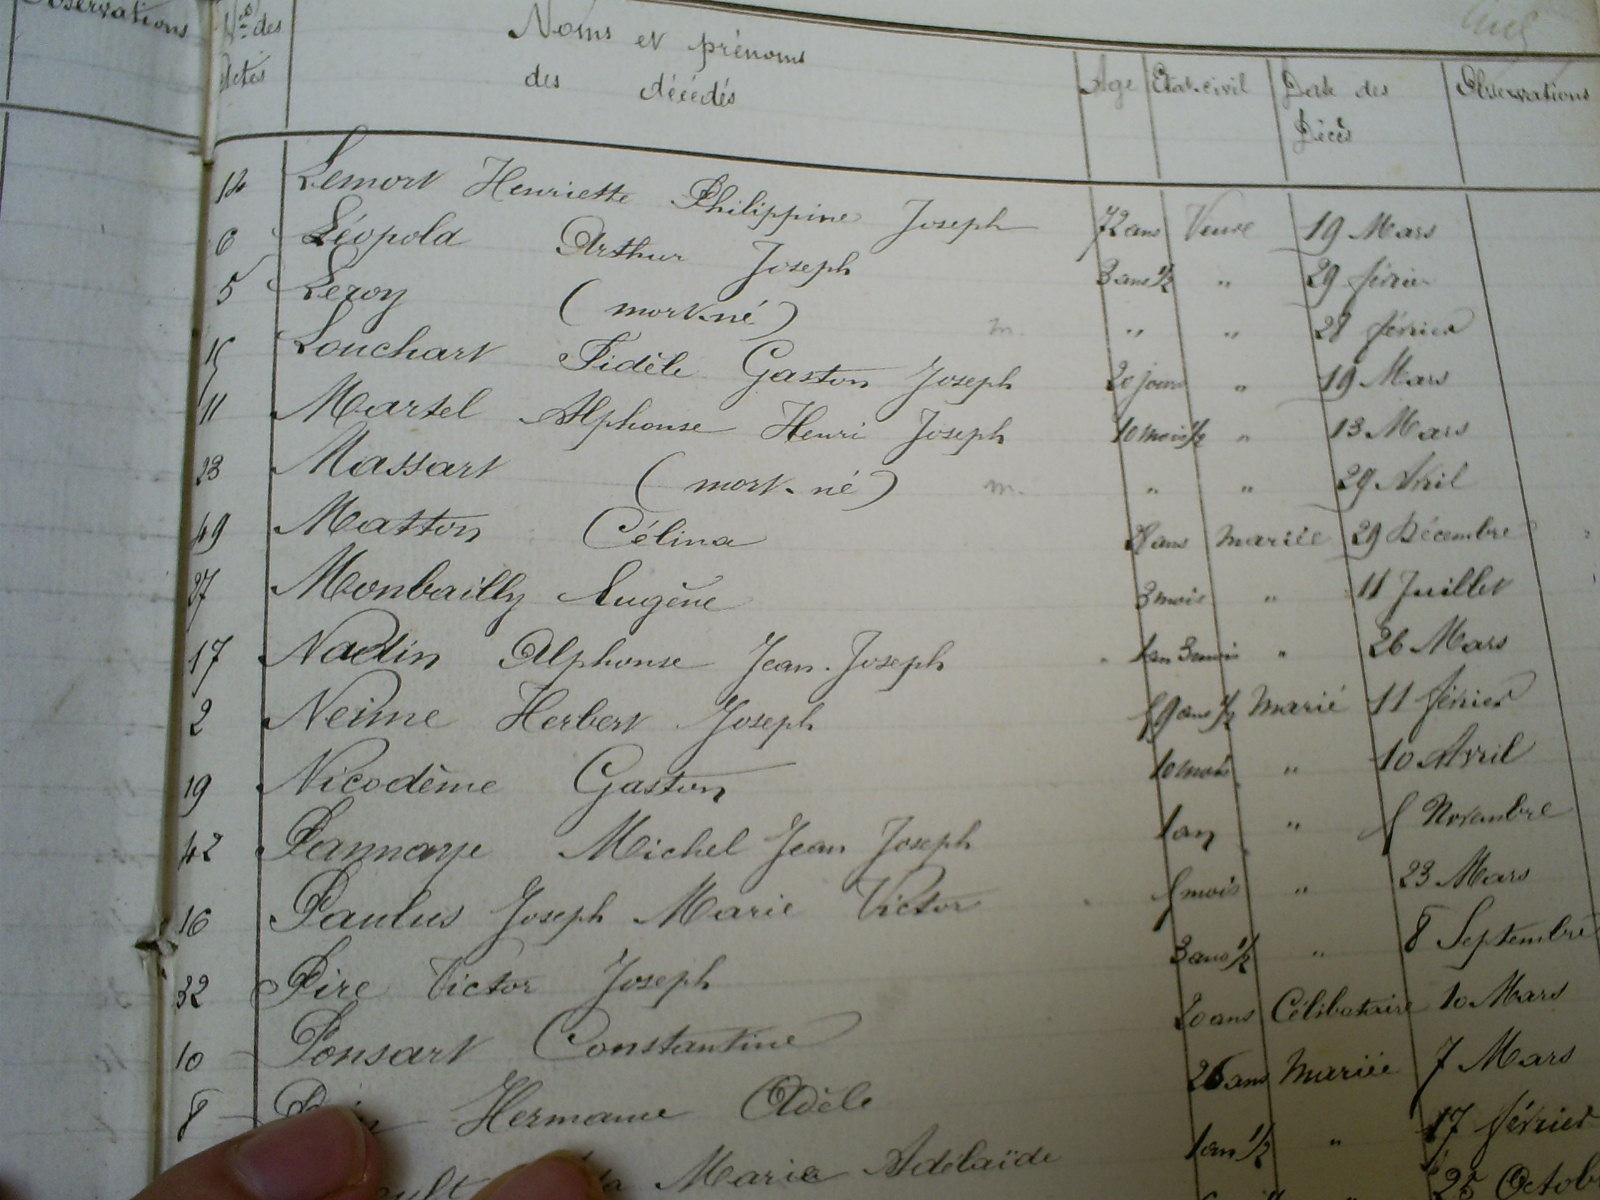 Observations
Nos des Actes Noms et prénoms des décédés Age Etat-civil Date des Décès Observations
14 Lemort Henriette Philippine Joseph 72 ans Veuve 19 Mars
6 Léopold Arthur Joseph 3 ans 1/2 " 29 février
5 Leroy (mort-né) m. " " 28 février
15 Louchart Fidèle Gaston Joseph 20 jours " 19 Mars
11 Martel Alphonse Henri Joseph 10 mois 1/2 " 13 Mars
23 Massart (mort-né) m. " " 29 Avril
49 Matton Célina ans mariée 29 Décembre
27 Monbailly Eugène 3 mois " 11 Juillet
17 Nadin Alphonse Jean-Joseph 1 an 3 mois " 26 Mars
2 Neime Herbert Joseph 59 ans 1/2 Marié 11 février
19 Nicodème Gaston 10 mois " 10 Avril
42 Pannaye Michel Jean Joseph 1 an " 5 Novembre
16 Paulus Joseph Marie Victor 5 mois " 23 Mars
32 Pire Victor Joseph 3 ans 1/2 " 8 Septembre
10 Ponsart Constantine 20 ans Célibataire 10 Mars
8 Hermance Adèle 26 ans Mariée 7 Mars
Marie Adélaïde 1 an 1/2 " 17 février
25 Octob